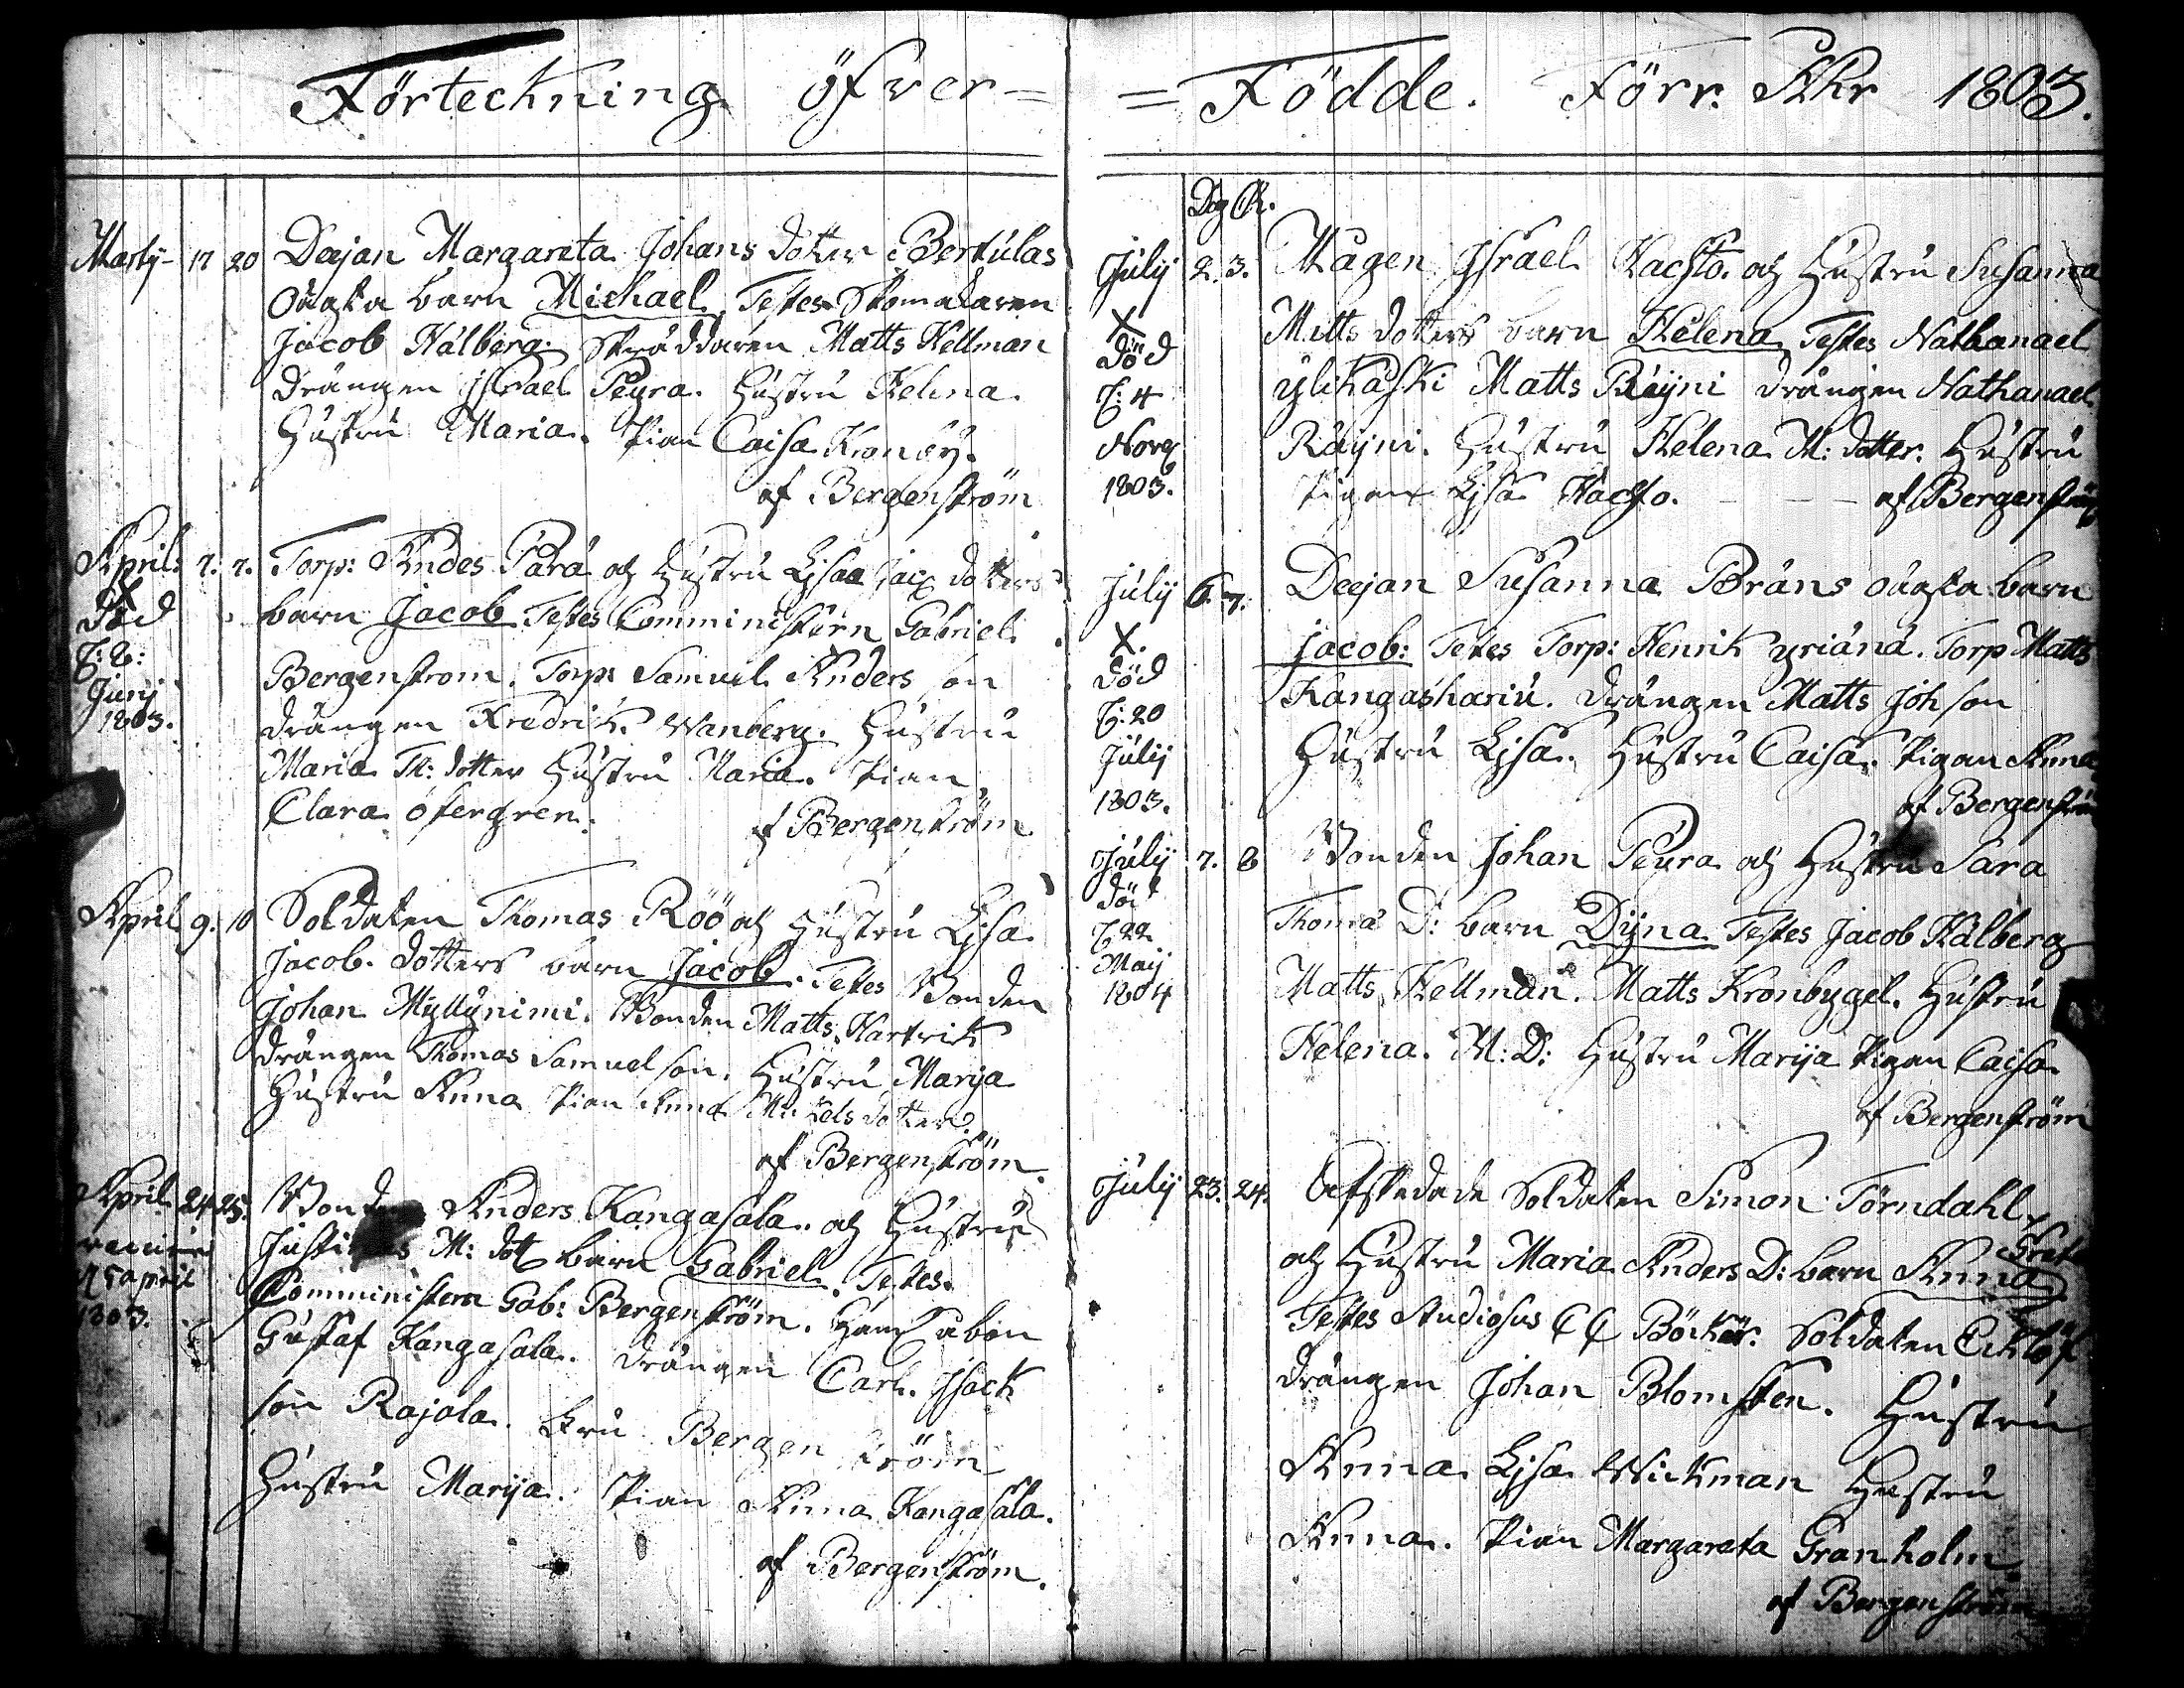 Förteckning öfver=
Martij 17 20 Deejan Margareta Johans dotter Bertulas
oägta barn Michael. Testes Skomakaren
Jacob Kålberg. Skräddaren Matts Hellman
drängen Israel Peura. Hustru Helena.
Hustru Maria. Pian Caisa
af Bergenström
April: 7. 7. Torp: Andes Para och Hustru Lisa dotters
barn Jacob Testes Comministern Gabriel
Bergenstrom. Torp: Samuel Anders son
drängen Fredrik Wanberg. Hustru
Maria Th: dotter Hustru Maria. Pian
Clara Ofergren.
af Bergenström
död
d: 8:
Junij
1803.
April 9. 10 Soldaten Thomas Röö och Hustru Lisa
Jacob. dotters barn Jacob. Testes Bonden
Johan Myllynimi. Bonden Matts Hartvik
drängen Thomas Samuel son. Hustru Marija
Hustru Anna Pian Anna Mickels dotter.
af Bergenström
April 24 25. Bonden Anders Kangasala. och Hustru
M: dott barn Gabriel. Testes
Comministern Gab: Bergenström.
Gustaf Kangasala. drängen Carl. Isack
son Rajala. Fru Bergenström
Hustru Marija. Pian Anna Kangasala.
af Bergenström.
april
1803.
=Födde. Förr. Åhr 1803.
Dag
Julij 2. 3. Magen Israel Kachto. och Hustru Susanna
Matts dotters barn Helena Testes Nathanael
ylikaski Matts Räyni drängen Nathanael
Räyni. Hustru Helena M: dotter. Hustru
Pigan Lisa Kachto. af Bergenström
X
död
d: 4
Nov
1803.
Julij 6. 7. Deejan Susanna Bräns oägta barn
Jacob: Testes Torp: Henrik yriänä. Torp Matts
Kangasharju. drängen Matts Joh son
Hustru Lisa. Hustru Caisa. Pigan Anna
af Bergenström
X.
död
d: 20
Julij
1803.
Julij 7. 8 Bonden Johan Peura och Hustru Sara
Thoma D: barn Dyna Testes Jacob Kålberg
Matts Hellman. Matts Kronbygel. Hustru
Helena. M: D: Hustru Marija Pigan Caisa
af Bergenström
död
d 22
Maij
1804
Julij 23. 24. Afskedade Soldaten Simon Törndahl
och Hustru Maria Anders D: barn Anna Greta
Testes Studiosus Böcker. Soldaten Eklöf
drängen Johan Blomsten. Hustru
Anna Lisa Wickman Hustru
Anna. Pian Margareta Granholm
af Bergenström